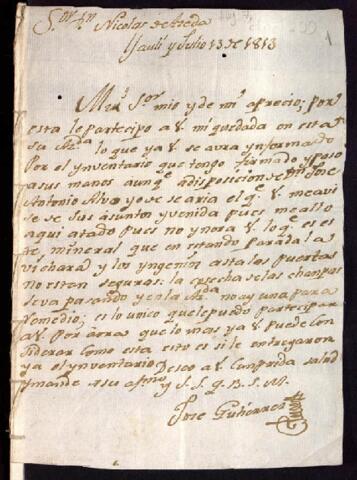 S.or D.n Nicolas de Azeda
Yauli y Julio 13 de 1813
Muy S.or mio y de mi aprecio; por
esta le partecipo a V. mi quedada en esta
su Az.da lo que ya V. se avra ynformado
Por el ynventario que tengo firmado y
a sus manos aunq.e a disposicion de mi
Antonio Alva yo se seria el q.e V. me avi
se se sus asuntos y venida pues me allo
aqui atado pues no ynora V. lo q.e es es
te mineral que en estando parada la
vichara y los yngenios asta las puertas
no estan seguras: la cosecha se las champas
se va pasando y en la Az.da no ay una para
remedio; es lo unico que le puedo partecipar
a V. por aoras que lo mas ya V. puede con
siderar como esta esto es si le entregaron
ya el ynventario Deseo a V. cumprida salud
y mande a su afmo y S. S. q. B. S. M.
Jose Gutierrez